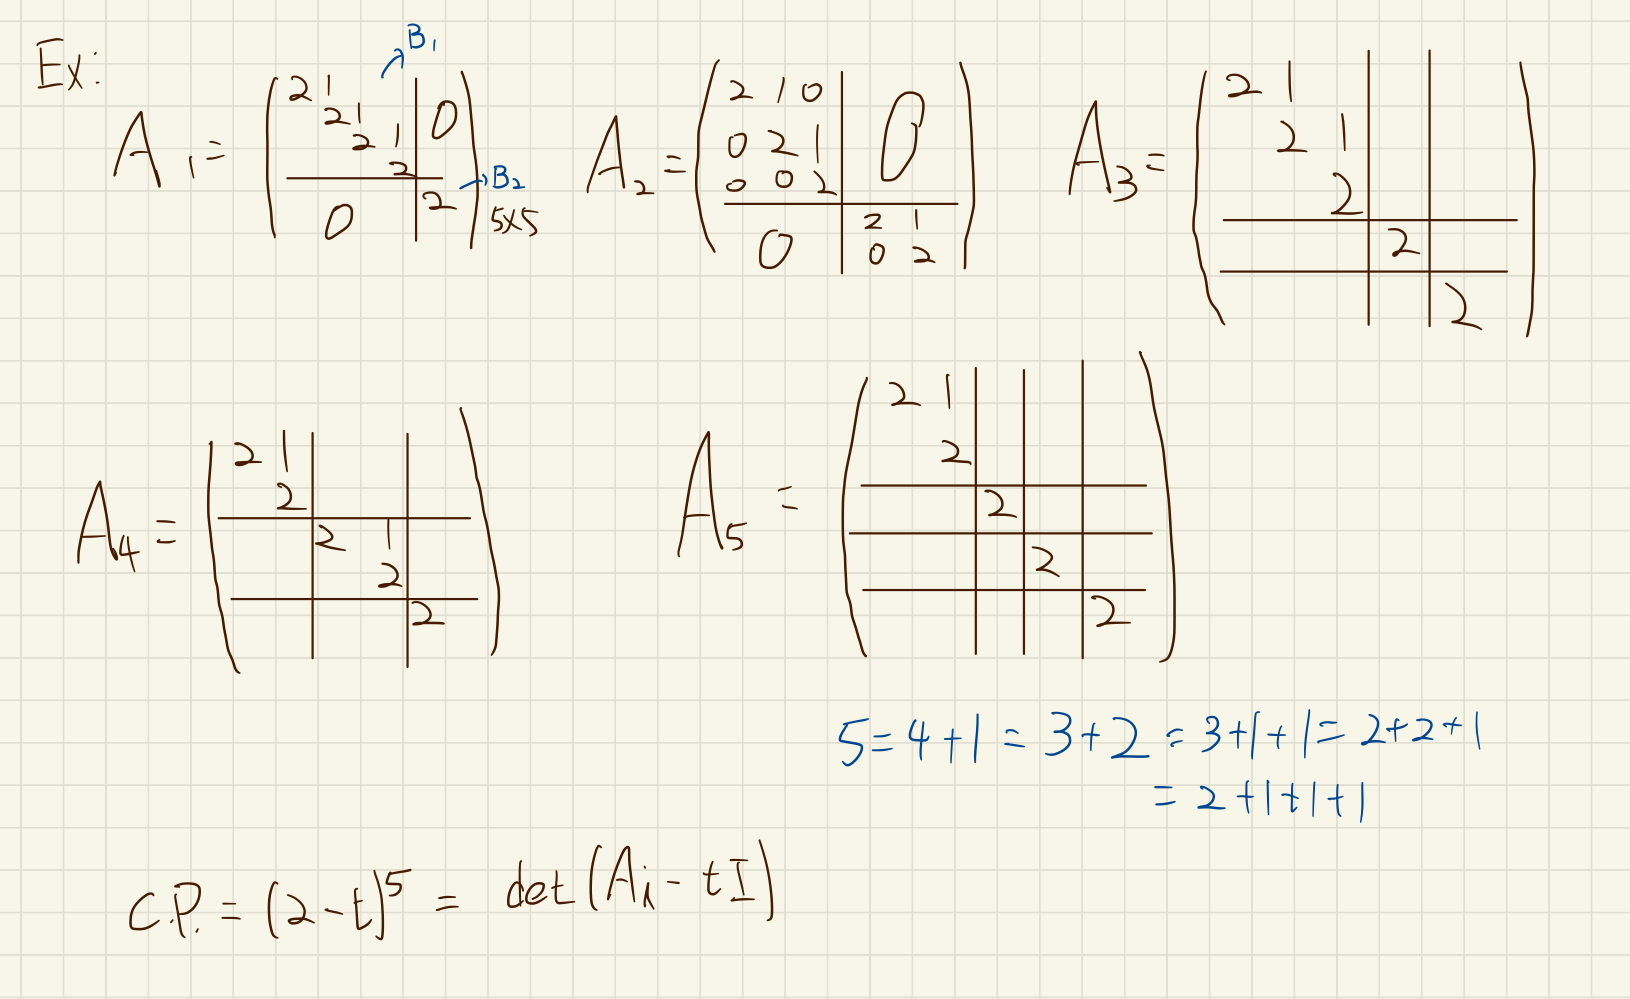 Ex:
B₁
A₁ =
2 1
2 1
2 1 0
2
0 2
B₂
5×5
A₂ =
2 1 0
0 2 1 0
0 0 2
0 2 1
0 2
A₃ =
2 1
2 1
2
2
2
A₄ =
2 1
2
2 1
2
2
A₅ =
2 1
2
2
2
2
5 = 4 + 1 = 3 + 2 = 3 + 1 + 1 = 2 + 2 + 1
= 2 + 1 + 1 + 1
C.P. = (2 - t)⁵ = det(Aᵢ - tI)